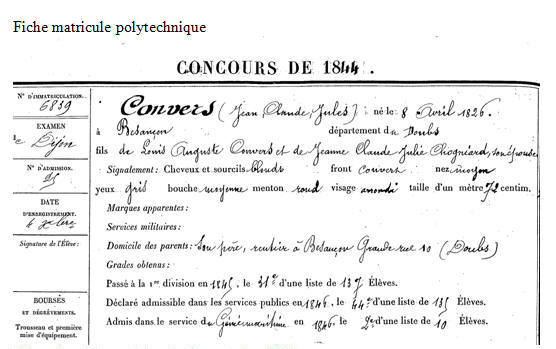 Fiche matricule polytechnique
CONCOURS DE 1844.
N° D'IMMATRICULATION.
6839
EXAMEN
de Dijon
N° D'ADMISSION.
25
DATE
D'ENREGISTREMENT.
Signature de l'Élève:
BOURSES
ET DÉGRÈVEMENTS.
Trousseau et première
mise d'équipement.
Convers (Jean, Claude, Jules) né le 8 Avril 1826.
à Besançon département du Doubs
fils de Louis Auguste Convers et de Jeanne Claude Julie Chogniard, son épouse
Signalement: Cheveux et sourcils blonds front couvert nez moyen
yeux gris bouche moyenne menton rond visage arrondi taille d'un mètre 72 centim.
Marques apparentes:
Services militaires:
Domicile des parents: Son père, rentier à Besançon Grande rue 10 (Doubs)
Grades obtenus:
Passé à la 1re division en 1845, le 31e d'une liste de 137 Élèves.
Déclaré admissible dans les services publics en 1846, le 44e d'une liste de 135 Élèves.
Admis dans le service du Génie maritime en 1846, le 2e d'une liste de 10 Élèves.